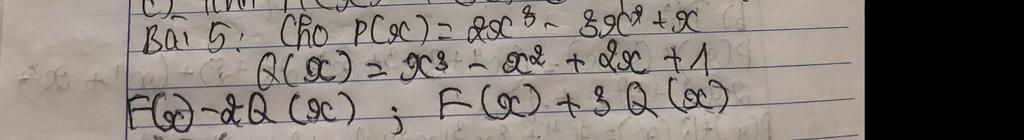 Bài 5: Cho P(x) = 2x³ - 3x² + x
Q(x) = x³ - x² + 2x + 1
F(x) - 2Q(x) ; F(x) + 3Q(x)